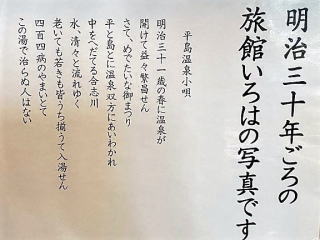 明治三十年ごろの
旅館いろはの写真です
平島温泉小唄
明治三十一歳の春に温泉が
開けて益々繁昌せん
さて、めでたいな御まつり
平と島とに温泉双方にあいわかれ
中をへだてる合志川
水、清々と流れゆく
老いても若きも皆うち揃うて入湯せん
四百四病のやまいとて
この湯で治らぬ人はない